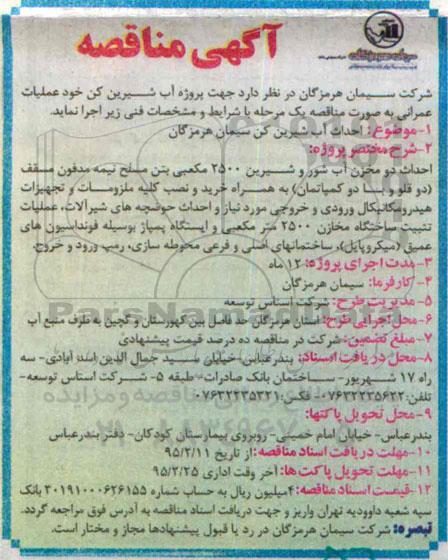 آگهی مناقصه
شرکت سیمان هرمزگان در نظر دارد جهت پروژه آب شیرین کن خود عملیات
عمرانی به صورت مناقصه یک مرحله با شرایط و مشخصات فنی زیر اجرا نماید.
۱-موضوع: احداث آب شیرین کن سیمان هرمزگان
۲-شرح مختصر پروژه:
احداث دو مخزن آب شور و شیرین ۲۵۰۰ مکعبی بتن مسلح نیمه مدفون مسقف
(دو قلو و با دو کمپاتمان) به همراه خرید و نصب کلیه ملزومات و تجهیزات
هیدرومکانیکال ورودی و خروجی مورد نیاز و احداث حوضچه های شیرآلات، عملیات
تثبیت ساختگاه مخازن ۲۵۰۰ متر مکعبی و ایستگاه پمپاژ بوسیله فونداسیون های
عمیق (میکروپایل)، ساختمانهای اصلی و فرعی محوطه سازی، رمپ ورود و خروج.
۳-مدت اجرای پروژه: ۱۲ ماه
۴-کارفرما: سیمان هرمزگان
۵-مدیریت طرح: شرکت استاس توسعه
۶-محل اجرایی طرح: استان هرمزگان حد فاصل بین کهورستان و گچین به طرف منبع آب
۷-مبلغ تضمین: شرکت در مناقصه ده درصد قیمت پیشنهادی
۸-محل دریافت اسناد: بندرعباس-خیابان سید جمال الدین اسد آبادی- سه
راه ۱۷ شهریور- ساختمان بانک صادرات- طبقه ۵- شرکت استاس توسعه-
تلفن: ۰۷۶۳۲۲۳۵۶۲۲- فکس: ۰۷۶۳۲۲۳۵۳۲۱
۹-محل تحویل پاکتها:
بندرعباس- خیابان امام خمینی- روبروی بیمارستان کودکان- دفتر بندرعباس
۱۰-مهلت دریافت اسناد مناقصه: از تاریخ ۹۵/۲/۱۱
۱۱-مهلت تحویل پاکت ها: آخر وقت اداری ۹۵/۲/۲۵
۱۲-قیمت اسناد مناقصه: ۴میلیون ریال به حساب شماره ۳۰۱۹۱۰۰۰۶۲۶۱۵۵ بانک
سپه شعبه داوودیه تهران واریز و جهت دریافت اسناد مناقصه به آدرس فوق مراجعه گردد.
تبصره: شرکت سیمان هرمزگان در رد یا قبول پیشنهادها مجاز و مختار است.